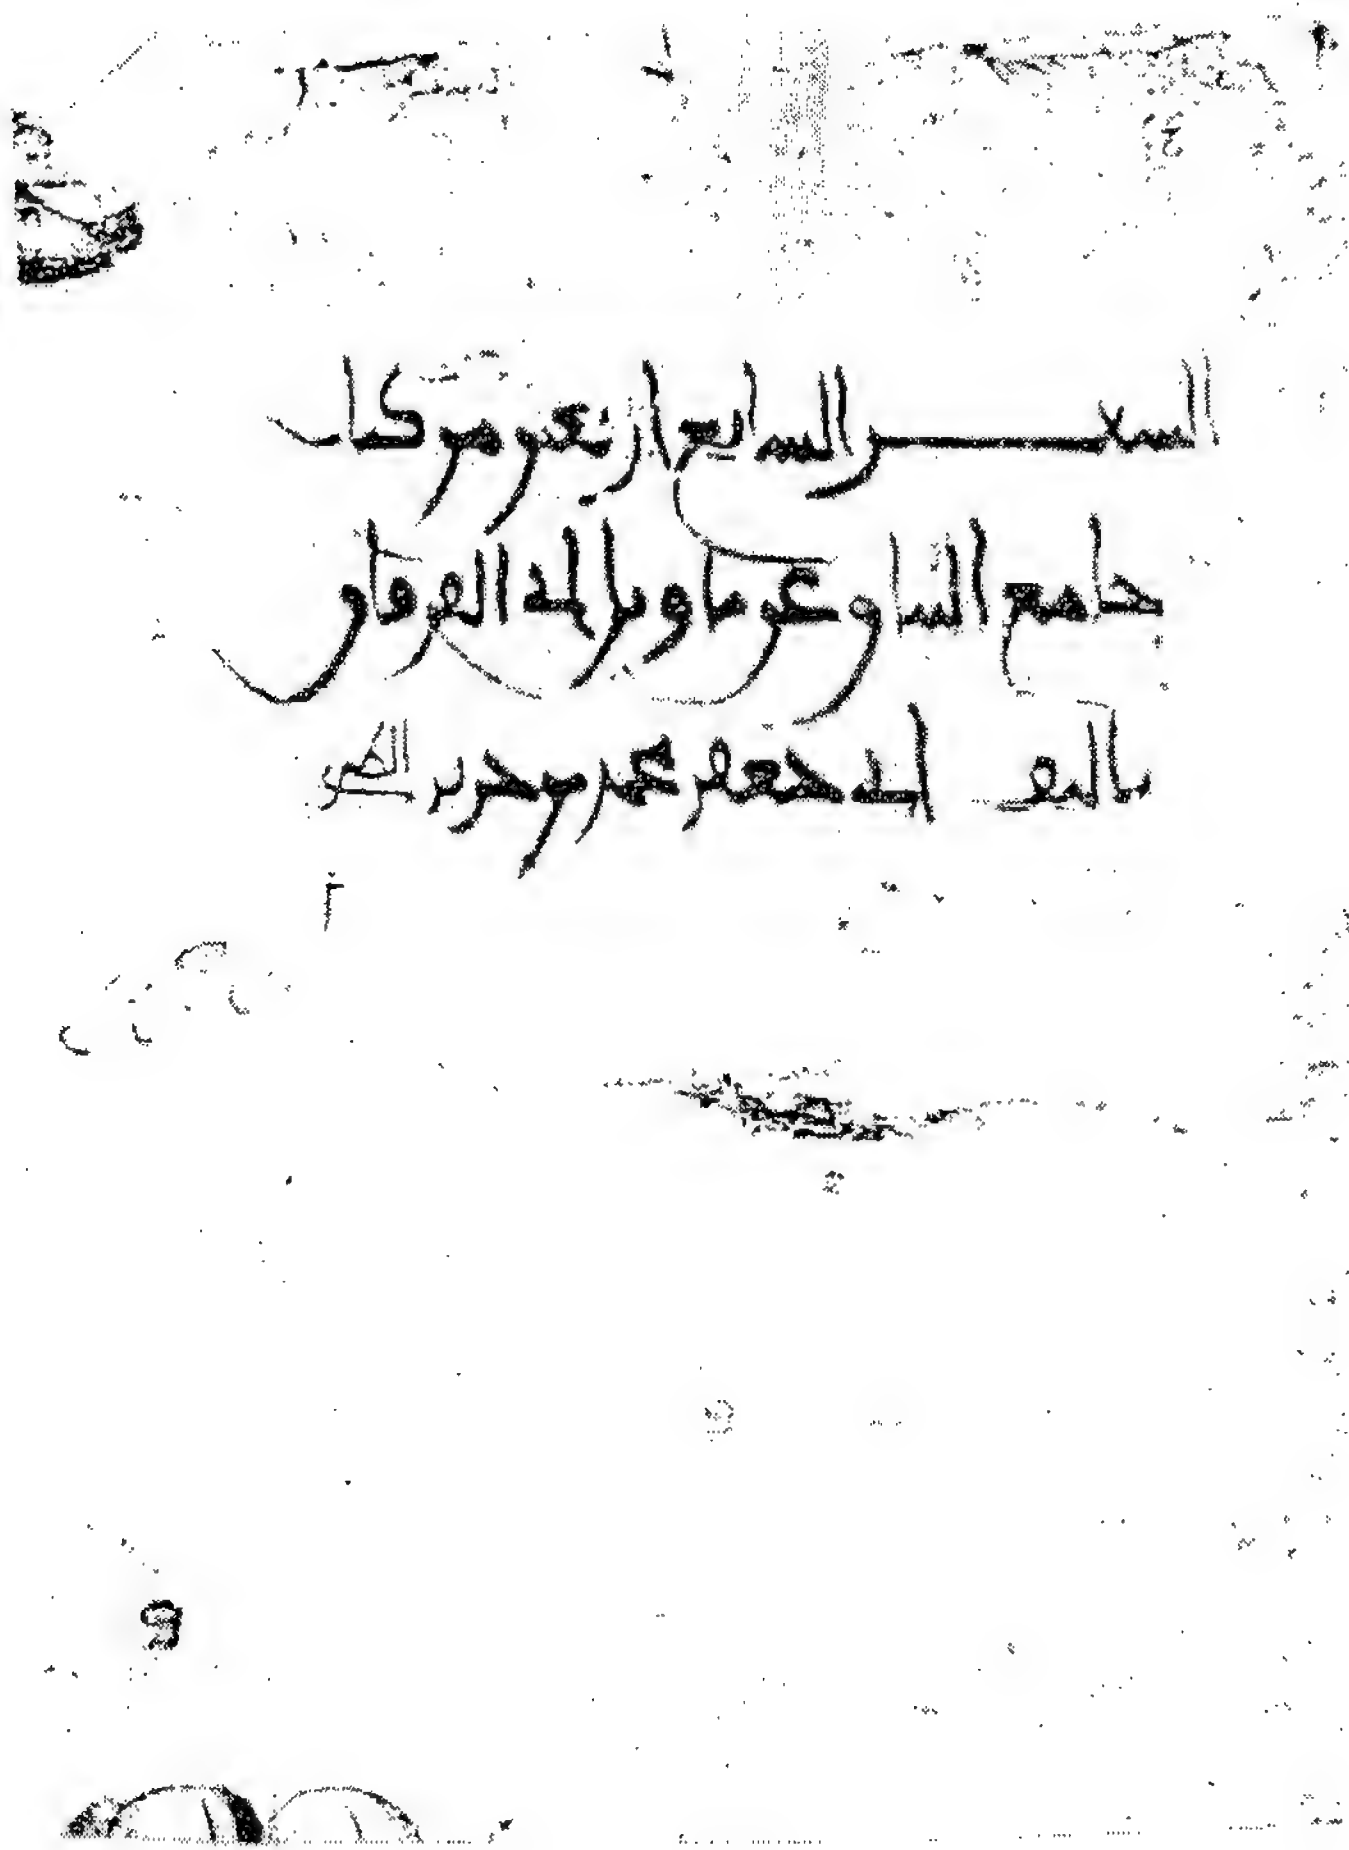 السفر السابع اربعون من كتاب
جامع البيان عن تاويل آي القرآن
تاليف ابي جعفر محمد بن جرير الطبري